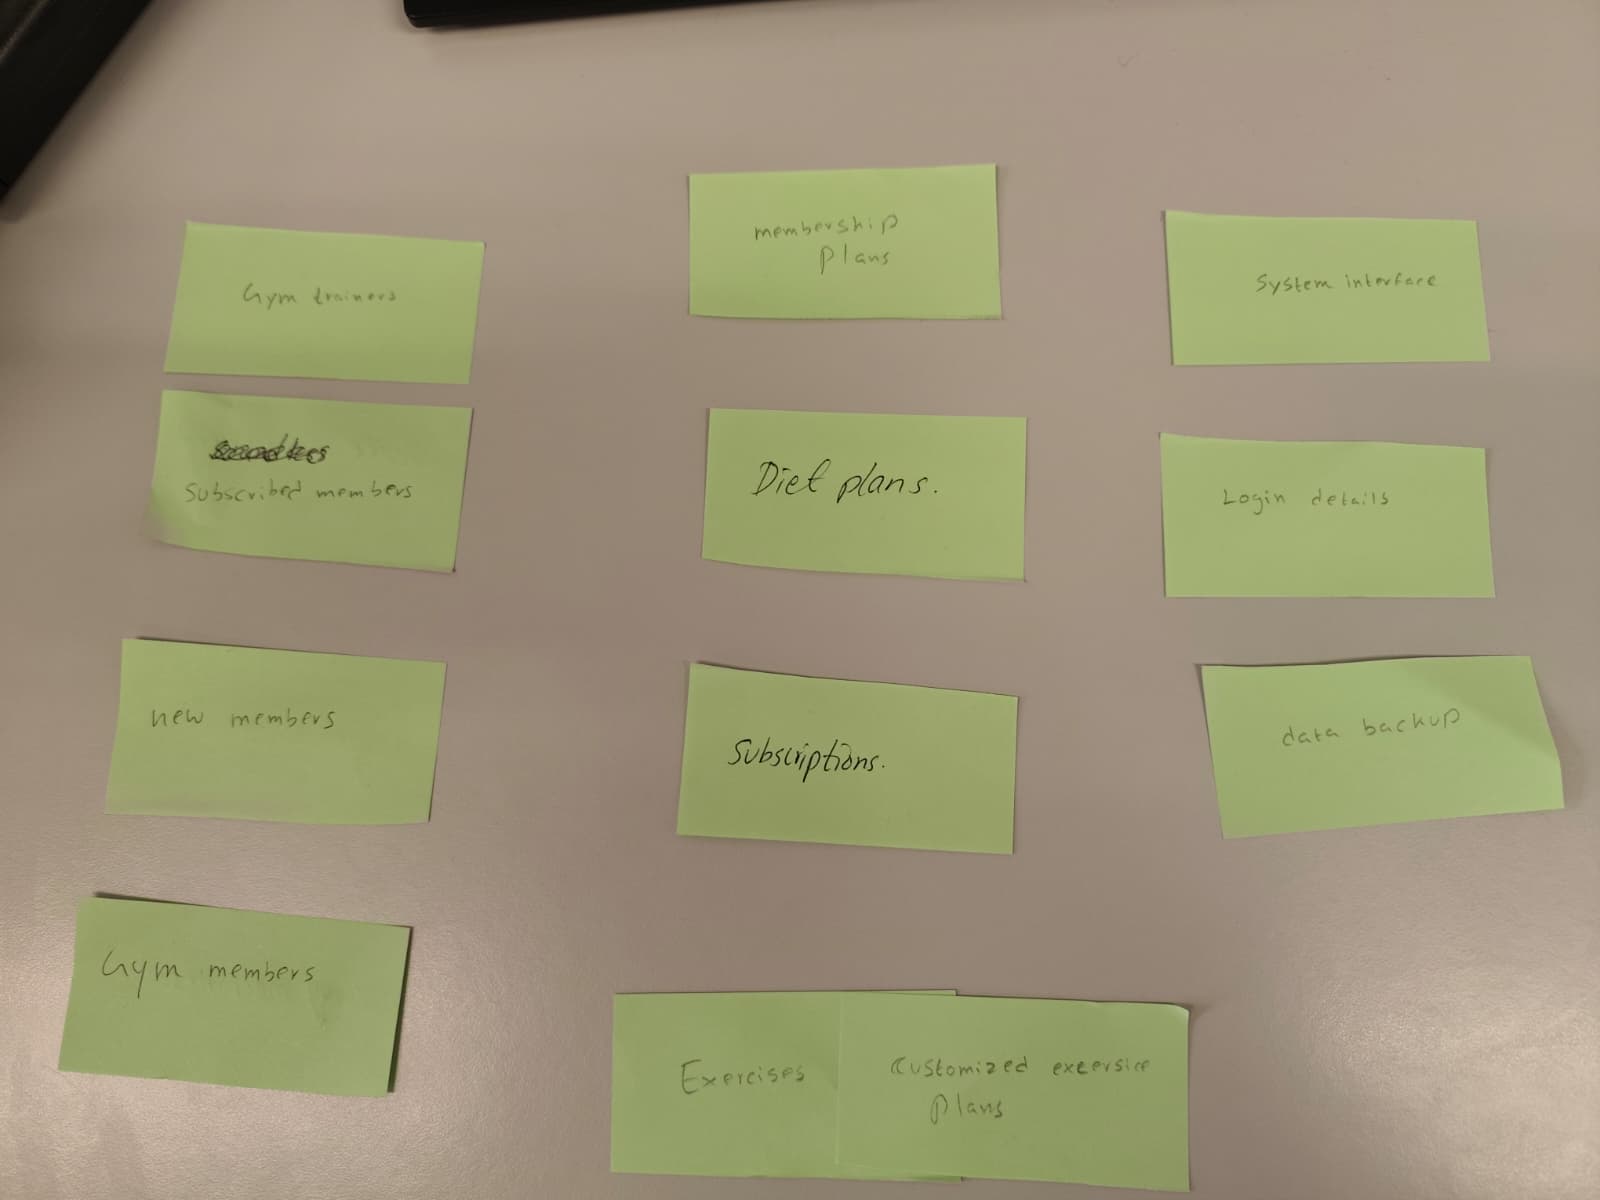 Gym trainers
Subscribed members
new members
Gym members
membership
plans
Diet plans.
Subscriptions.
Exercises
Customized excersice
plans
System interface
Login details
data backup